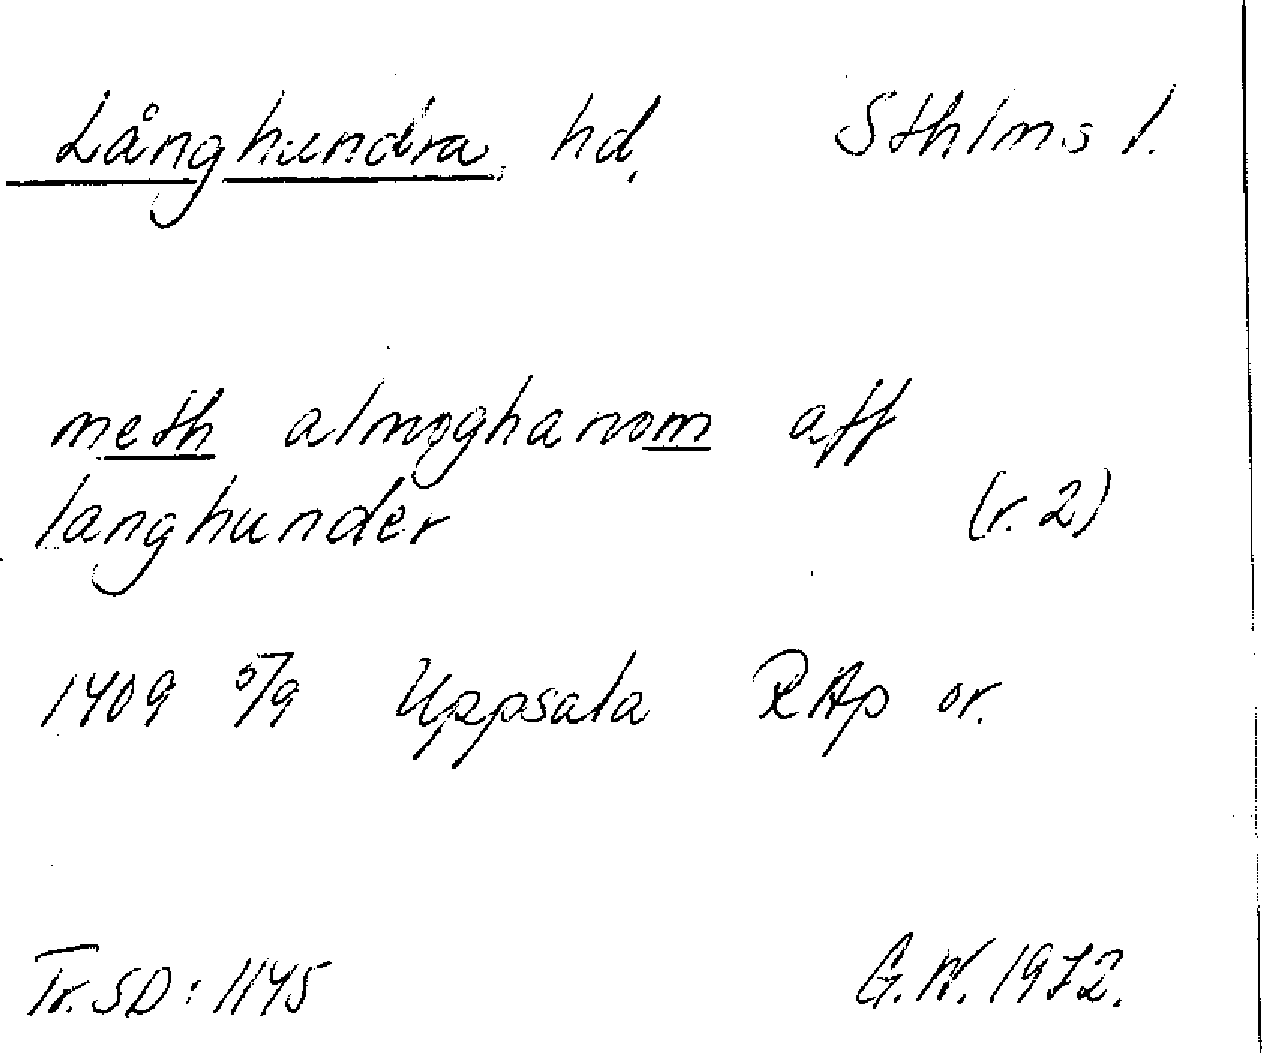 Långhundra hd. Sthlms l.
meth almoghanom aff
langhunder (r. 2)
1409 5/9 Uppsala RAp or.
Tr. SD: 1145 G.W. 1972.